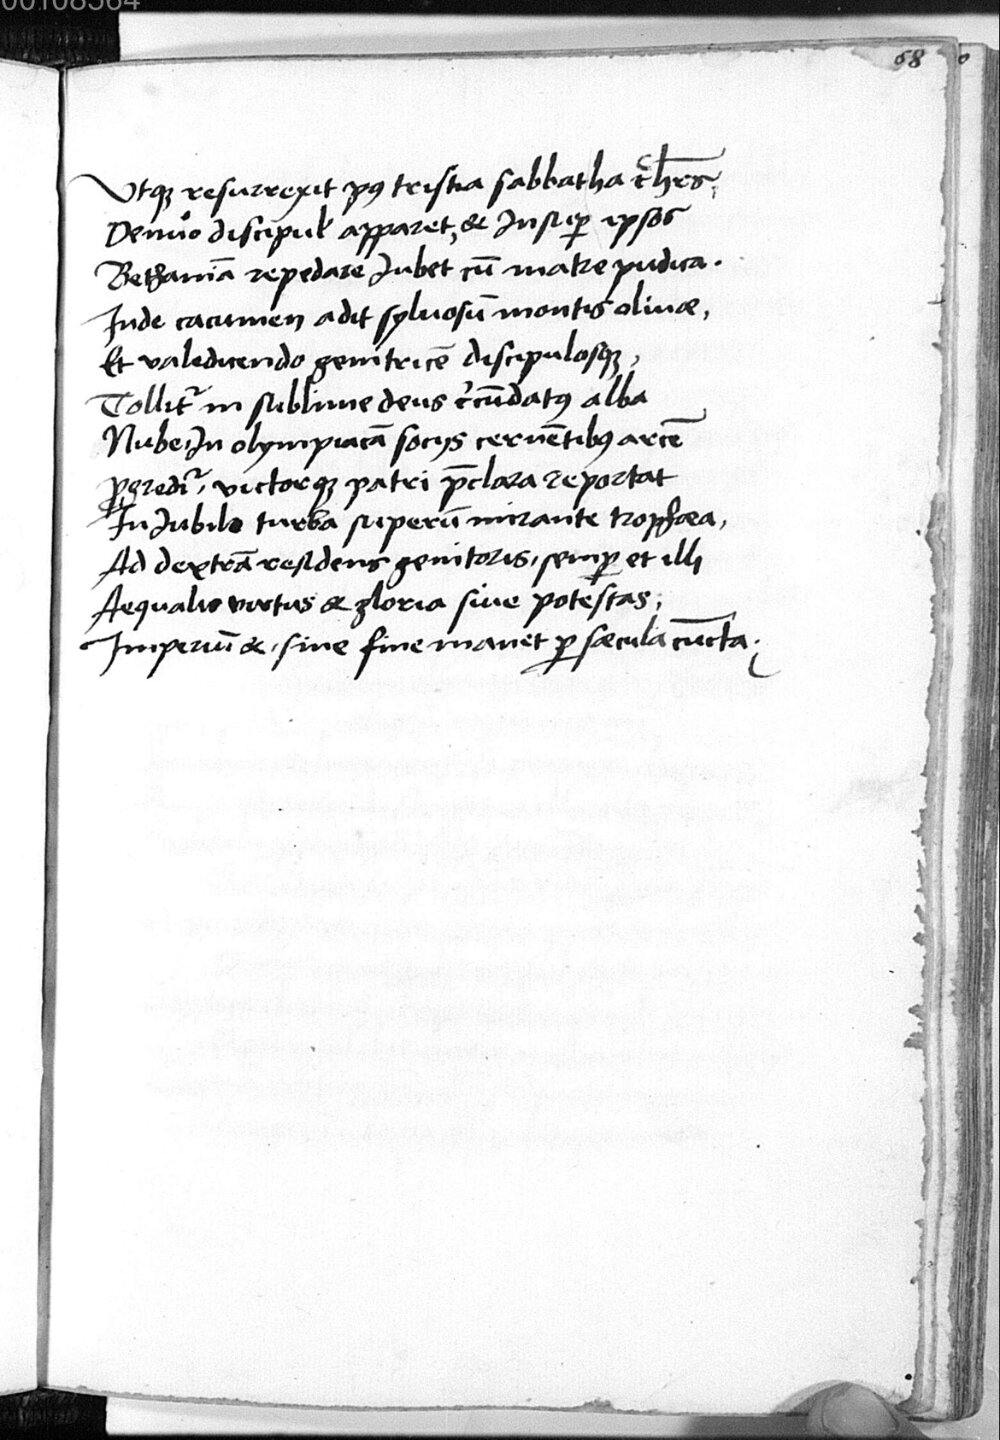 00108564
68
Vtqꝫ resurrexit pꝰ tristia sabbatha c̄hrs,
Denuo discipul' apparet, & Insuꝑ ipsos
Bethaniā repedare Iubet cū matre pudica.
Inde cacumen adit sylvosū montis olivæ,
Et valedicendo genitricē discipulosqꝫ,
Tollit᷑ in sublime deus c̄cūdatꝰ alba
Nube, In olympiacā socijs cernētibꝰ arcē
ꝓgredit᷑, victorqꝫ patri p̄clara reportat
In Iubilo turba superū mirante trophæa,
Ad dextrā residens genitoris, semꝑ et illi
Aequalis virtus & gloria sive potestas,
Imperiū &, sine fine manet ꝑ sæcula cūcta.